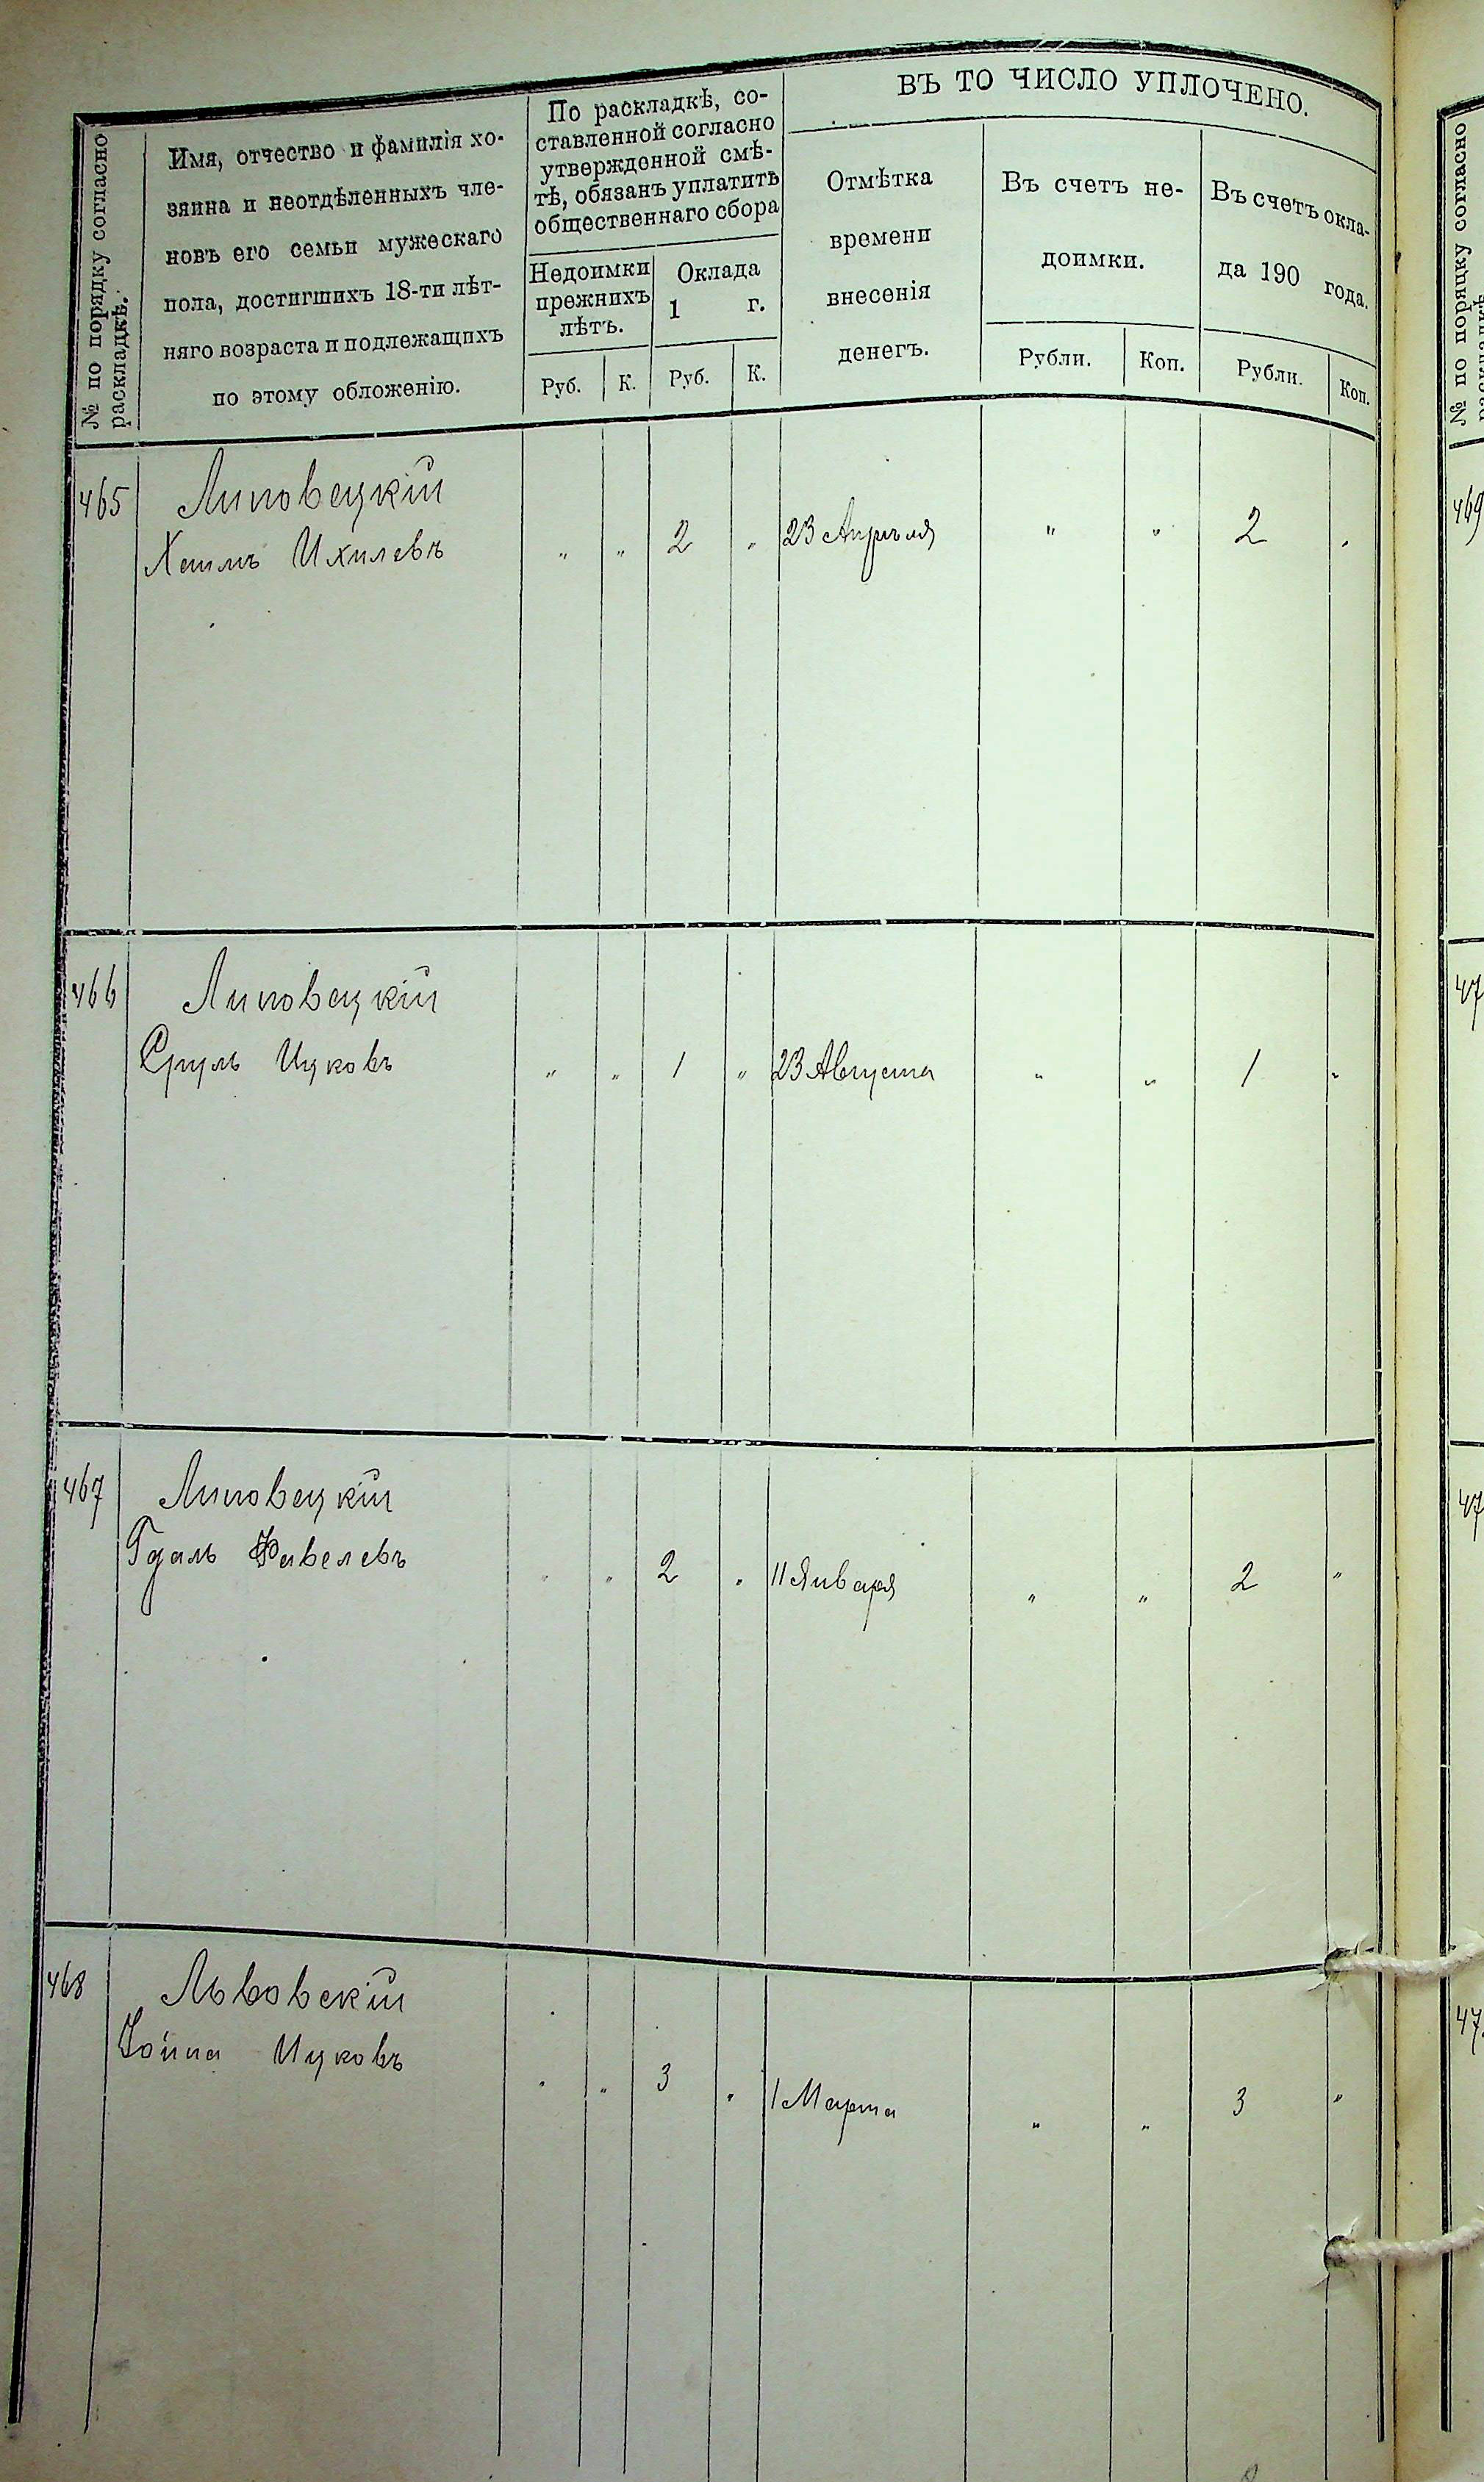 № по порядку согласно
раскладкѣ.
Имя, отчество и фамилія хо-
зяина и неотдѣленныхъ чле-
новъ его семьи мужескаго
пола, достигшихъ 18-ти лѣт-
няго возраста и подлежащихъ
по этому обложенію.
По раскладкѣ, со-
ставленной согласно
утвержденной смѣ-
тѣ, обязанъ уплатить
общественнаго сбора
Недоимки
прежнихъ
лѣтъ.
Оклада
1 г.
Руб. К. Руб. К.
ВЪ ТО ЧИСЛО УПЛОЧЕНО.
Отмѣтка
времени
внесенія
денегъ.
Въ счетъ не-
доимки.
Рубли. Коп.
Въ счетъ окла-
да 190 года.
Рубли. Коп.
465 Липовецкій
Хаимъ Ихилевъ " " 2 " 23 Апрѣля " " 2 "
466 Липовецкій
Сруль Ицковъ " " 1 " 23 Августа " " 1 "
467 Липовецкій
Гдаль Фавелевъ " " 2 " 11 Января " " 2 "
468 Львовскій
Іойна Ицковъ " " 3 " 1 Марта " " 3 "
№ по порядку согласно
469
47
47
47